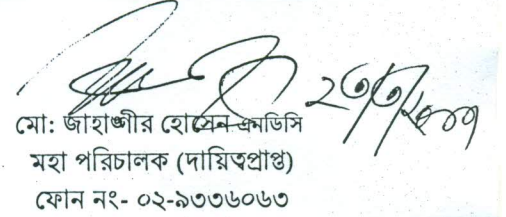 মো: জাহাঙ্গীর হোসেন এনডিসি
মহা পরিচালক (দায়িত্বপ্রাপ্ত)
ফোন নং- ০২-৯৩৩৬০৬৩